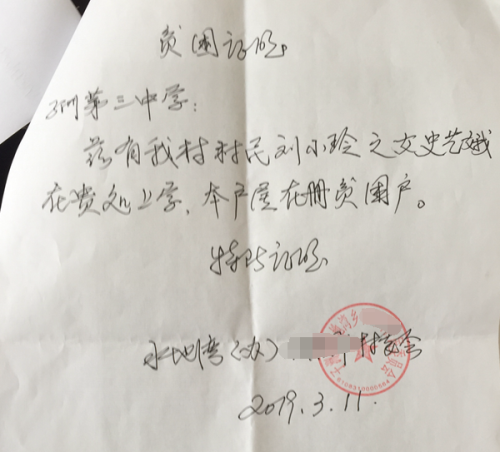 贫困证明
第三中学:
兹有我村村民刘小玲之女史艺娥
在贵处上学,本户属在册贫困户。
特此证明
水地湾(办) 村委会
2019.3.11.